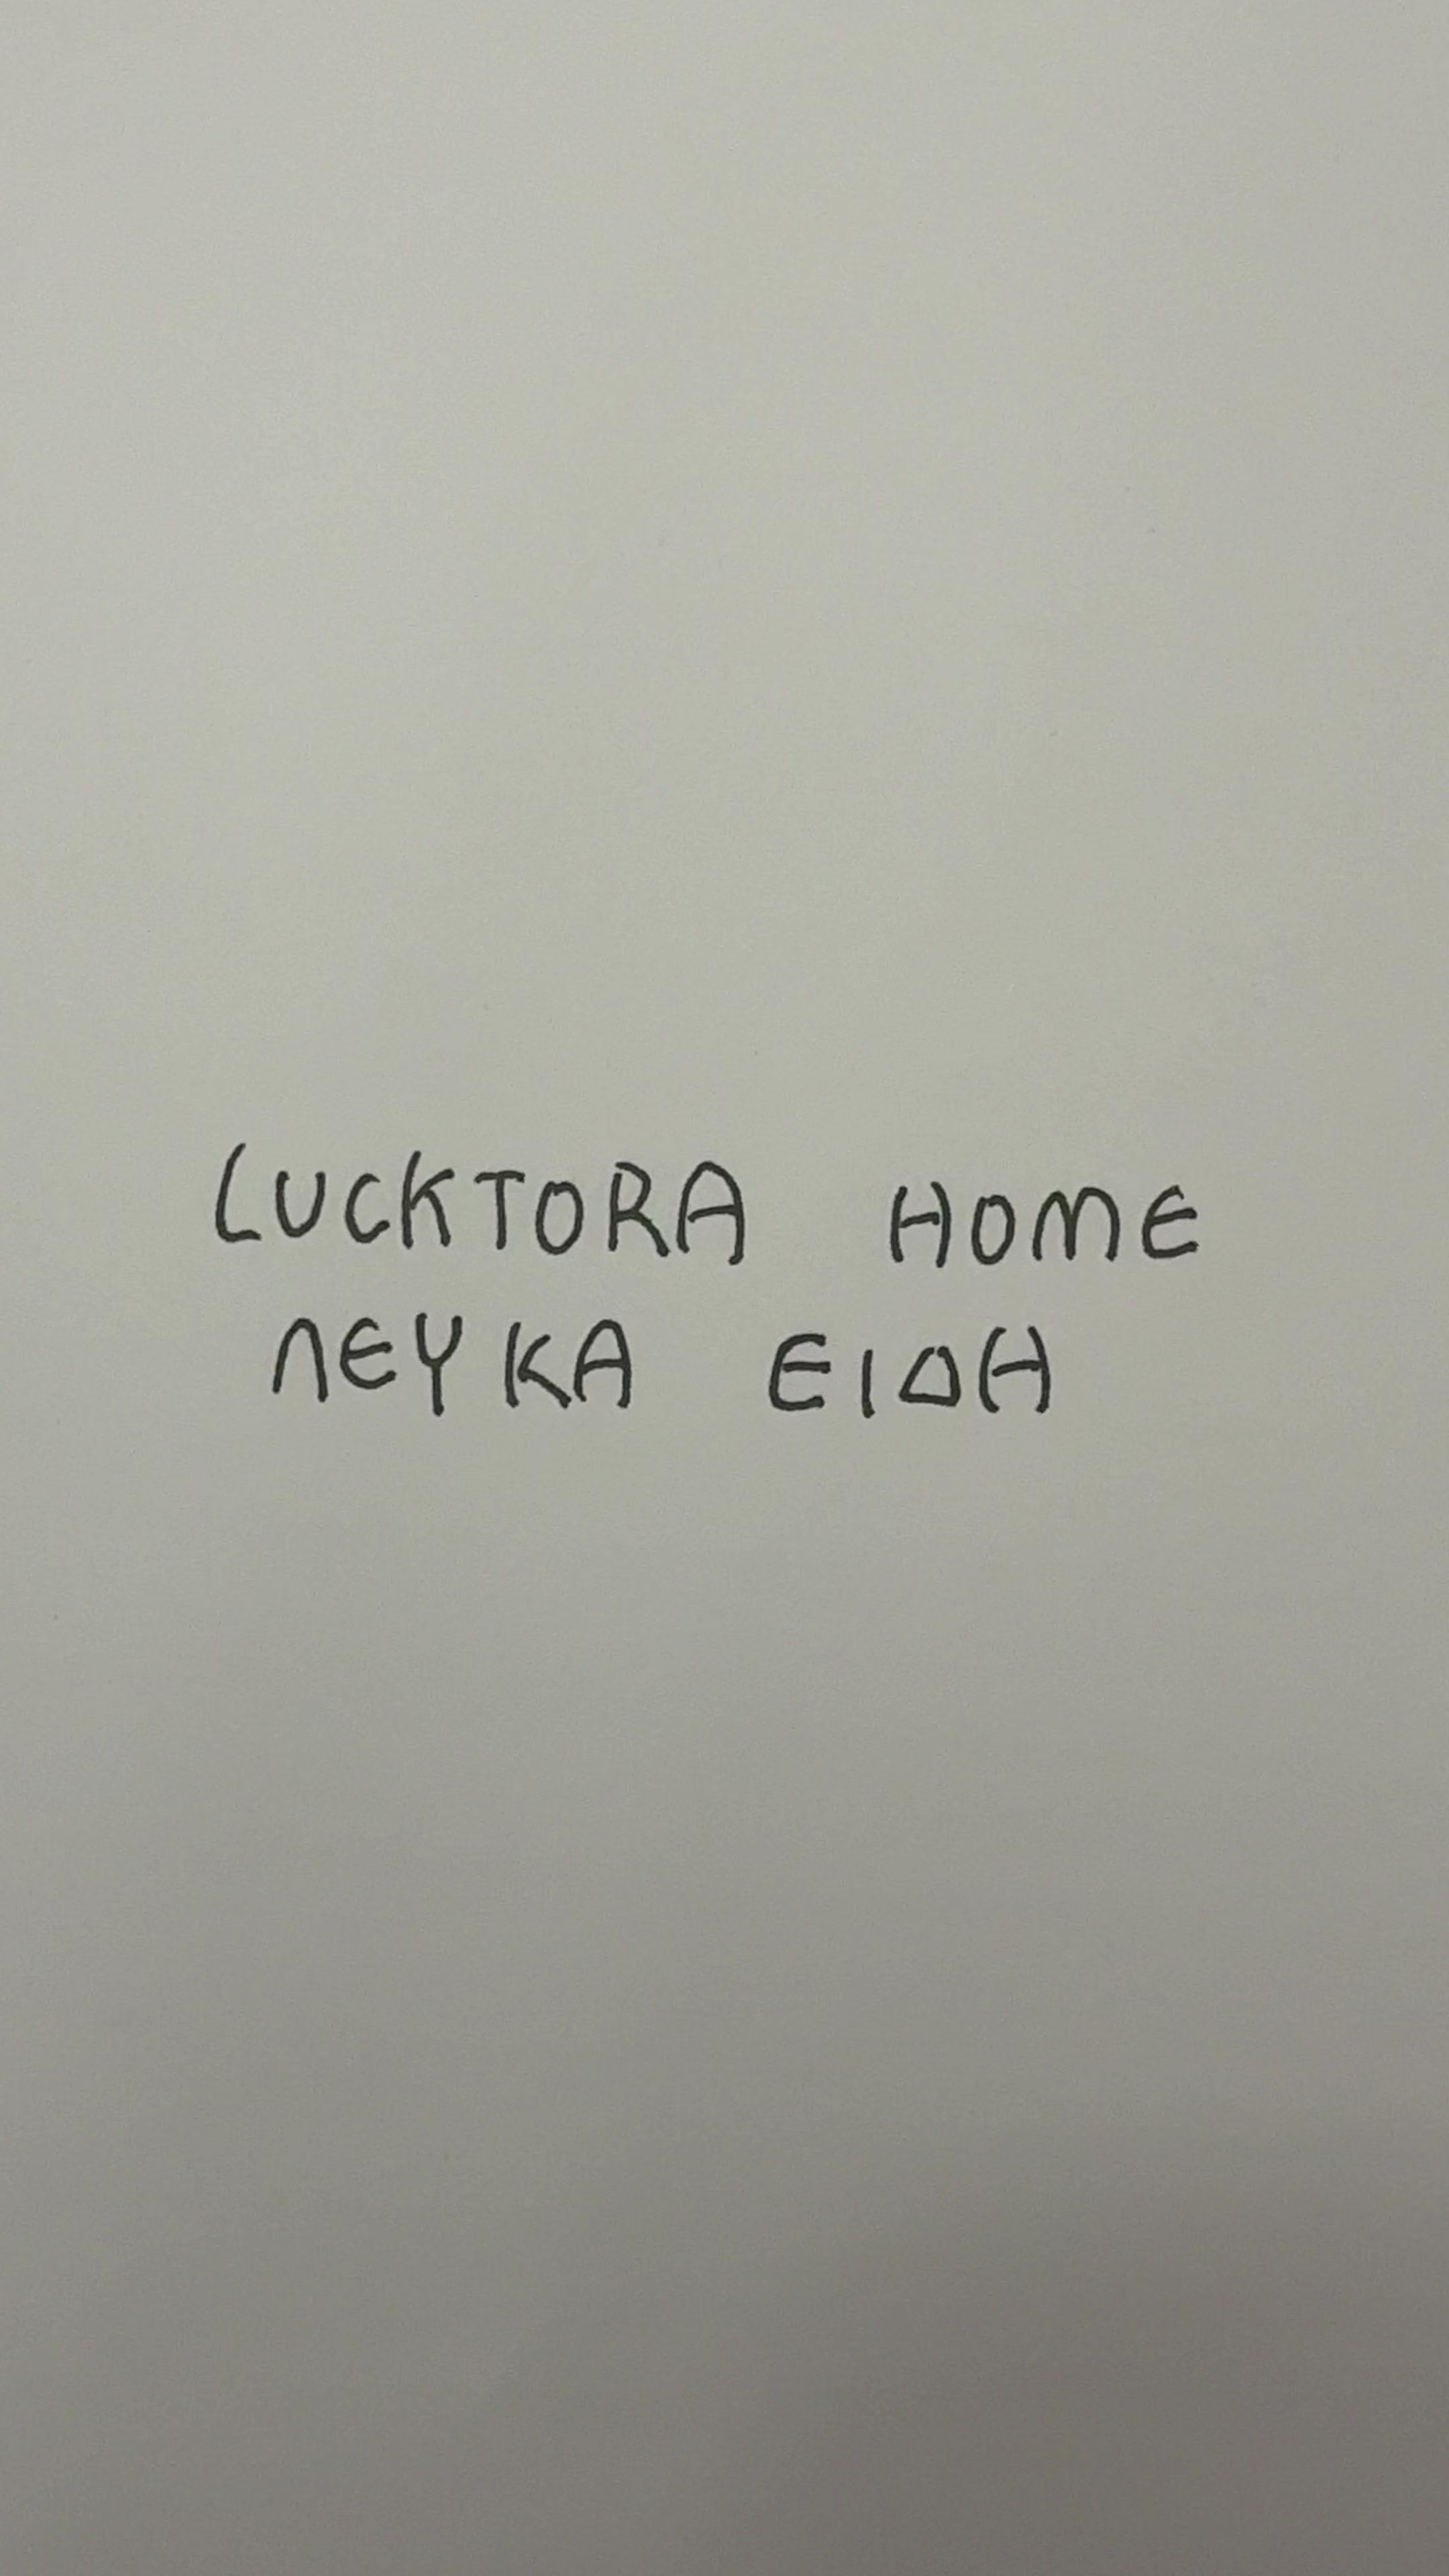 LUCKTORA HOME
ΛΕΥΚΑ ΕΙΔΗ